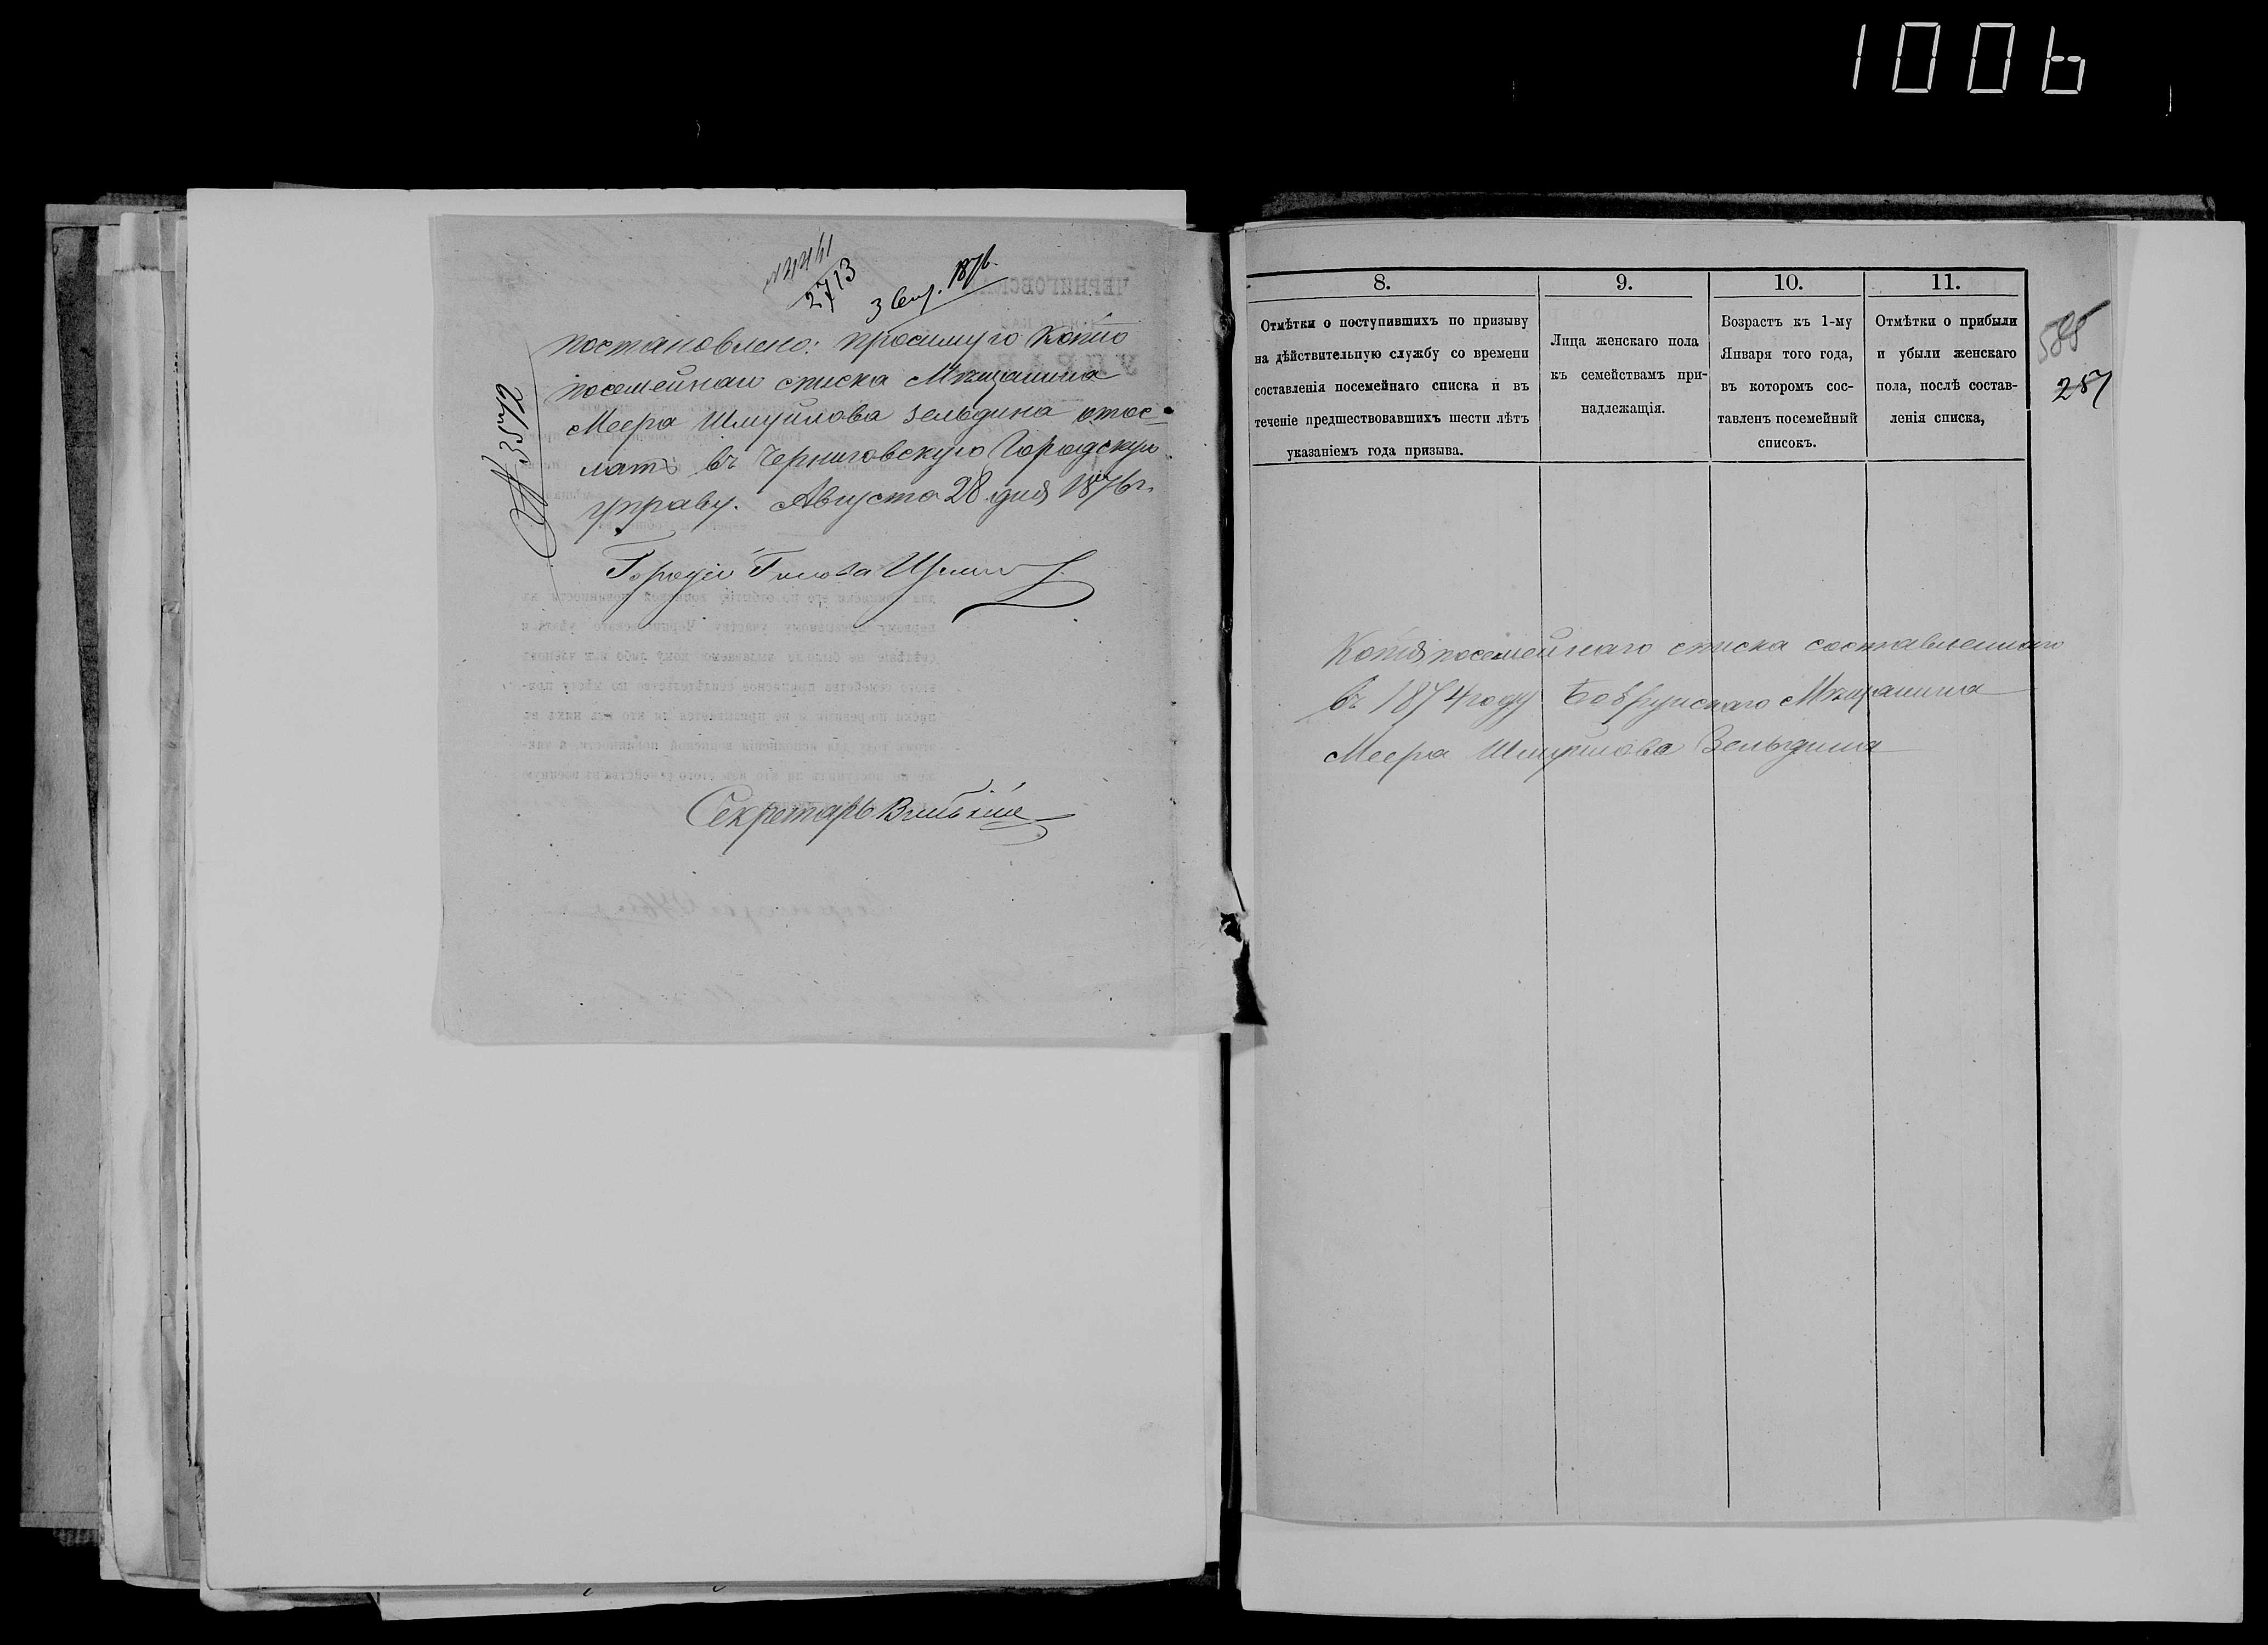 1006
2713
3 Сен. 1876.
№ 3572
постановлено: просимую копію
посемейнаго списка Мѣщанина
Меера Шмуйлова Зельдина отос-
лать въ Черниговскую Городскую
управу. Августа 28 дня 1876 г.
Голова
Секретарь
8.
Отмѣтки о поступившихъ по призыву
на дѣйствительную службу со времени
составленія посемейнаго списка и въ
теченіе предшествовавшихъ шести лѣтъ
указаніемъ года призыва.
9.
Лица женскаго пола
къ семействамъ при-
надлежащія.
10.
Возрастъ къ 1-му
Января того года,
въ которомъ сос-
тавленъ посемейный
списокъ.
11.
Отмѣтки о прибыли
и убыли женскаго
пола, послѣ состав-
ленія списка,
585
287
Копія посемейнаго списка составленнаго
въ 1874 году Бобруйскаго Мѣщанина
Меера Шмуйлова Зельдина